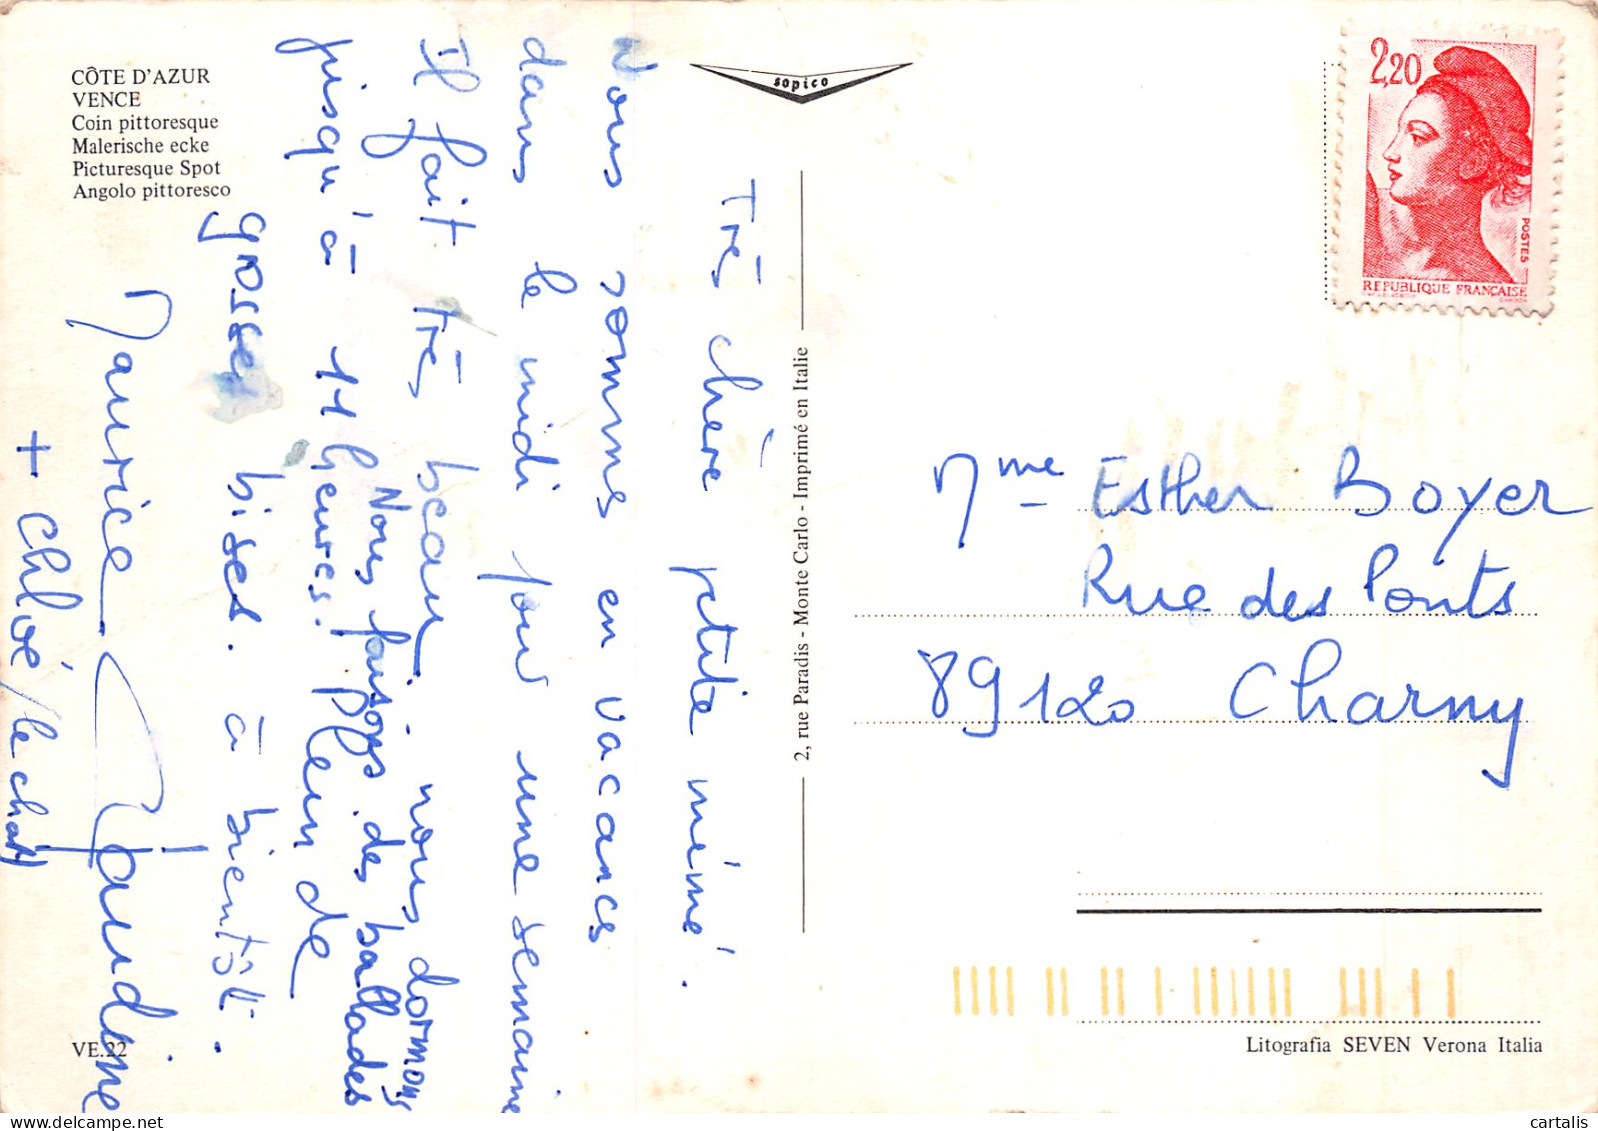 CÔTE D'AZUR
VENCE
Coin pittoresque
Malerische ecke
Picturesque Spot
Angolo pittoresco
sopico
2,20
POSTES
REPUBLIQUE FRANÇAISE
Très chère petite mémé.
Nous sommes en vacances
dans le midi pour une semaine
Il fait très beau. nous dormons
jusqu'à 11 heures.
Nous faisons des ballades
Plein de
grosses bises. à bientôt.
Maurice Claudine
+ Chloé (le chat)
2, rue Paradis - Monte Carlo - Imprimé en Italie
Mme Esther Boyer
Rue des Ponts
89120 Charny
VE.22
Litografia SEVEN Verona Italia
cartalis